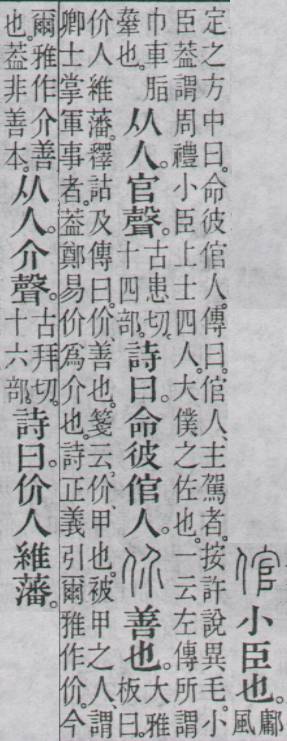 倌 小臣也。鄘風
定之方中曰。命彼倌人。傳曰。倌人、主駕者。按許說異毛。小
臣葢謂周禮小臣上士四人。大僕之佐也。一云左傳所謂
巾車脂舝也。从人。官聲。古患切。十四部。詩曰。命彼倌人。价 善也。大雅板曰。
价人維藩。釋詁及傳曰。价、善也。箋云。价、甲也。被甲之人、謂
卿士掌軍事者。葢鄭易价爲介也。詩正義引爾雅作价。今
爾雅作介善也。葢非善本。从人。介聲。古拜切。十六部。詩曰。价人維藩。